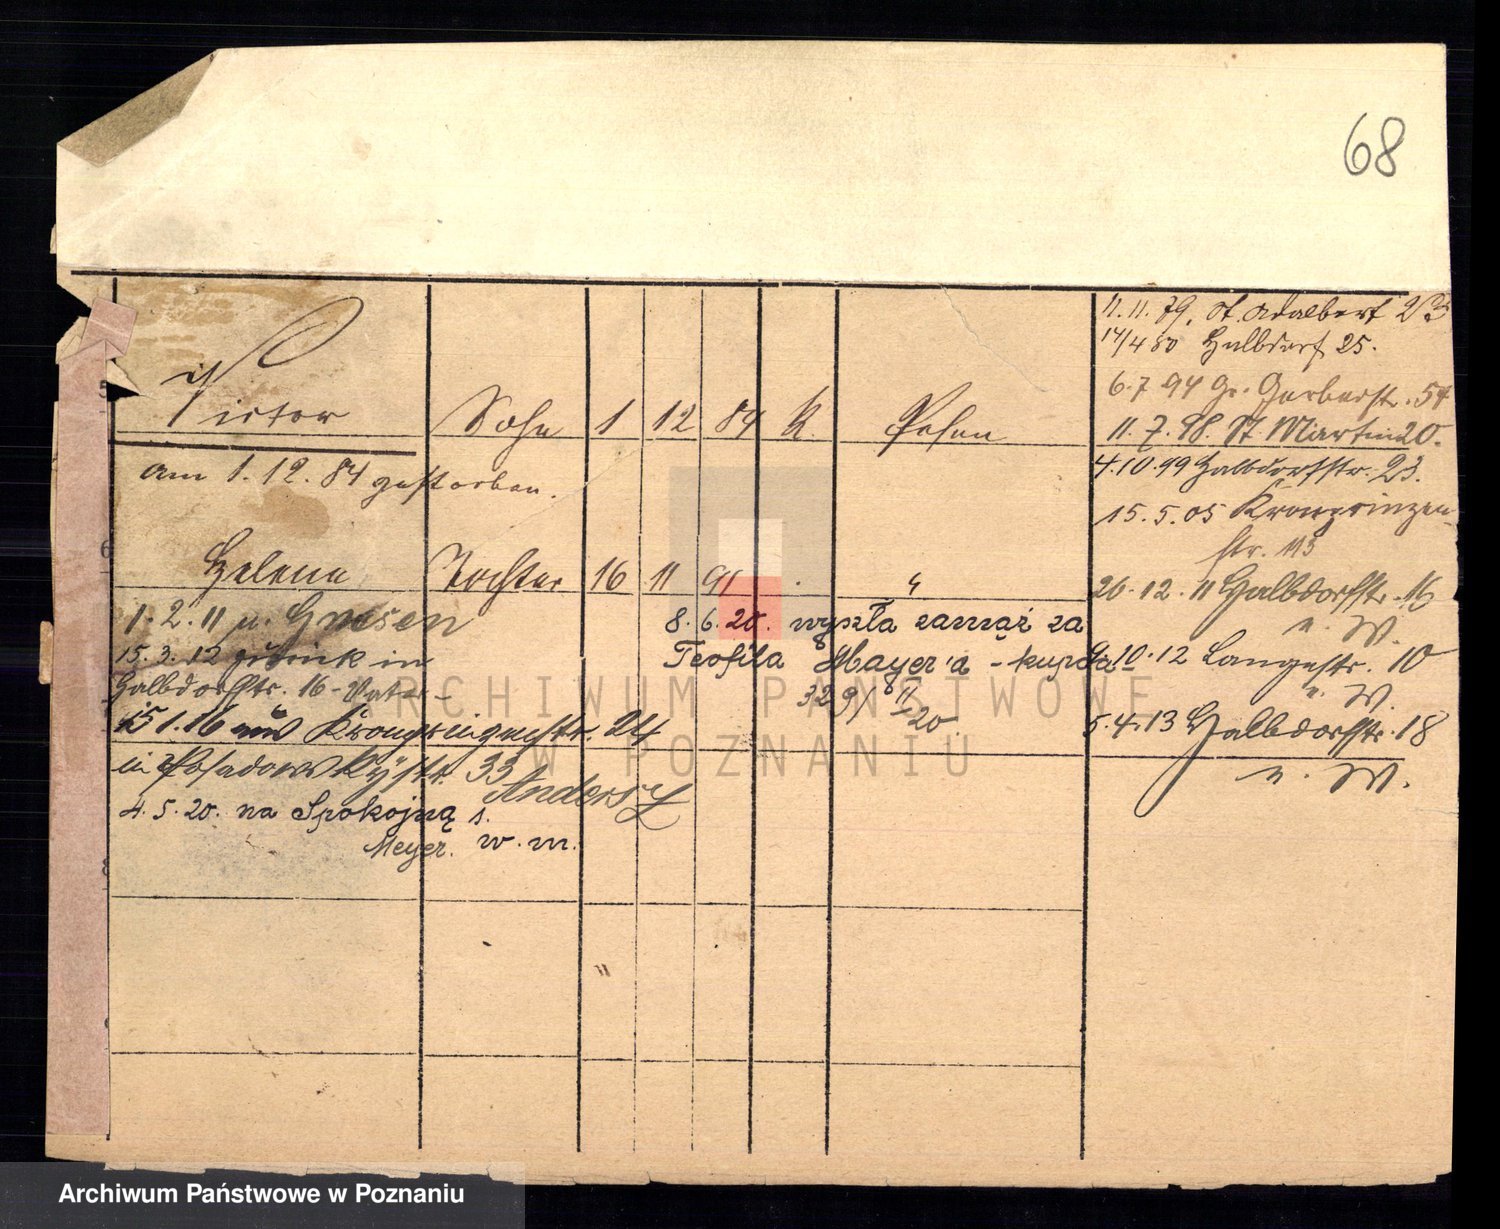 68
Victor Sohn 1 12 84 K. Posen
am 1. 12. 84 gestorben.
Helena Tochter 16 11 91 . "
1. 2. 11 n. Gnesen
15. 3. 12 zurück in
Halbdorfstr. 16 - Vater -
15 1. 16 aus Kronprinzenstr. 24
in Posadowskystr. 33
Anders
4. 5. 20. na Spokojną 1.
Meyer. w. m.
8. 6. 20. wyszła zamąż za
Teofila Mayer'a - kupca
329/ 11
20.
11. 11. 79. St. Adalbert 23
14/4 80 Halbdorf 25.
6. 7 94 Gr. Gerberstr. 54
11. 7. 98. St Martin 20.
4. 10. 99 Halbdorfstr. 23.
15. 5. 05 Kronprinzen-
str. 113
20. 12. 11 Halbdorfstr. 16
u. W.
9. 10. 12 Langestr. 10
u. W.
5. 4. 13 Halbdorfstr. 18
u. W.
ARCHIWUM PAŃSTWOWE
W POZNANIU
Archiwum Państwowe w Poznaniu